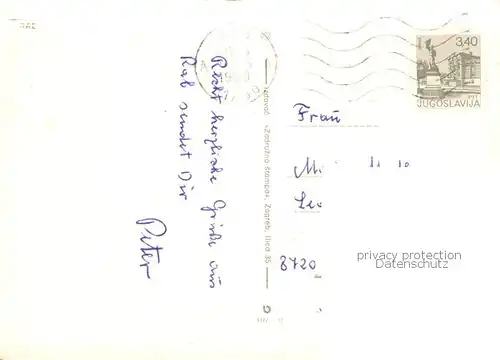 Recht herzliche Grüße aus
Rab sendet Dir
Peter
Izdavač: »Zadružna štampa«, Zagreb, Ilica 35
3,40
JUGOSLAVIJA
Frau
8720
privacy protection
Datenschutz